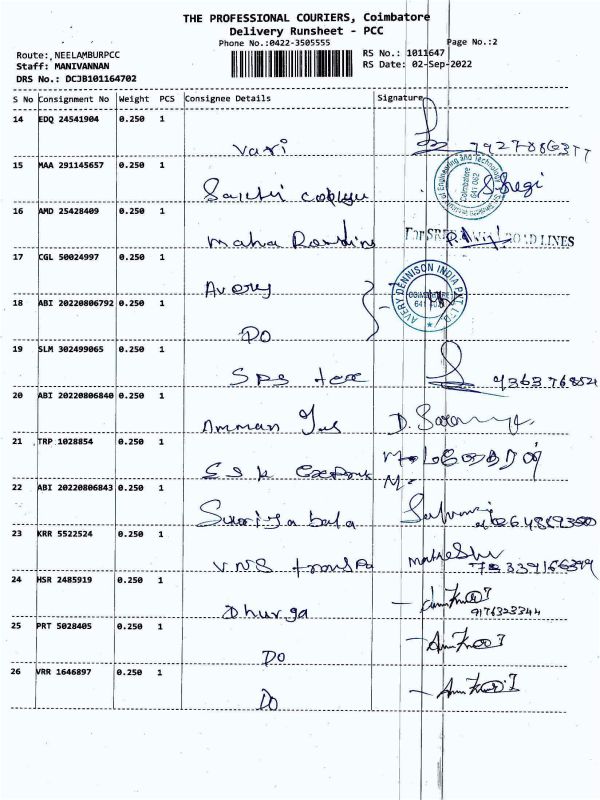 THE PROFESSIONAL COURIERS, Coimbatore
Delivery Runsheet - PCC
Phone No.:0422-3505555
Page No.:2
Route: NEELAMBURPCC
RS No.: 1011647
Staff: MANIVANNAN
RS Date: 02-Sep-2022
DRS No.: DCJB101164702
S No Consignment No Weight PCS Consignee Details Signature
14 EDQ 24541904 0.250 1
Vari
15 MAA 291145657 0.250 1
Sakthi
16 AMD 25428409 0.250 1
Maha
For SRI ROAD LINES
17 CGL 50024997 0.250 1
Avery
AVERY DENNISON INDIA PVT. LTD.
18 ABI 20220806792 0.250 1
DO
19 SLM 302499065 0.250 1
SPS tex
20 ABI 20220806840 0.250 1
Amman
21 TRP 1028854 0.250 1
SSK Exports
22 ABI 20220806843 0.250 1
Suriya bala
23 KRR 5522524 0.250 1
VNS
24 HSR 2485919 0.250 1
Dhurga
9176323344
25 PRT 5028405 0.250 1
DO
26 VRR 1646897 0.250 1
DO